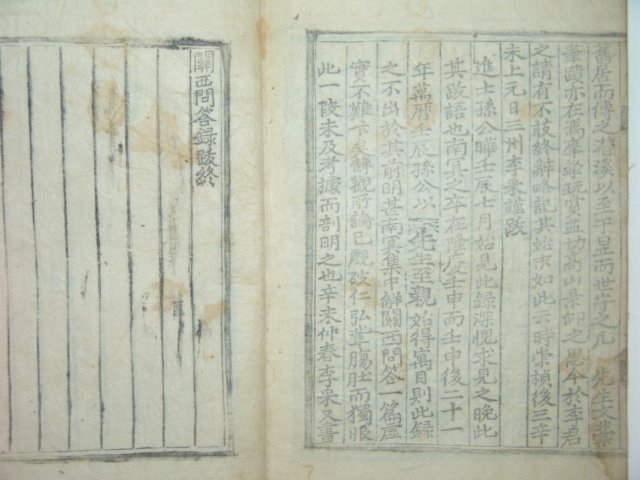 舊居而傳之溪以至于昱而世守之凡 先生文
筆蹟亦在焉奉玩賞益切高山景仰之思今於李君
之請有不敢終辭略記其始末如此云時崇禎後三辛
未上元日三州李采謹跋
進士孫公暐壬辰七月始見此録深恨求見之晚此
其跋語也南冥之卒在隆慶壬申而壬申後二十一
年萬曆壬辰孫公以先生至親始得寓目則此録
之不出於其前明甚南冥集中解關西問答一篇虛
實不難下矣辭觀所論已覷破仁弘輩膓肚而獨恨
此一段未及考據而剖明之也辛未仲春李采又書
關西問答録跋終